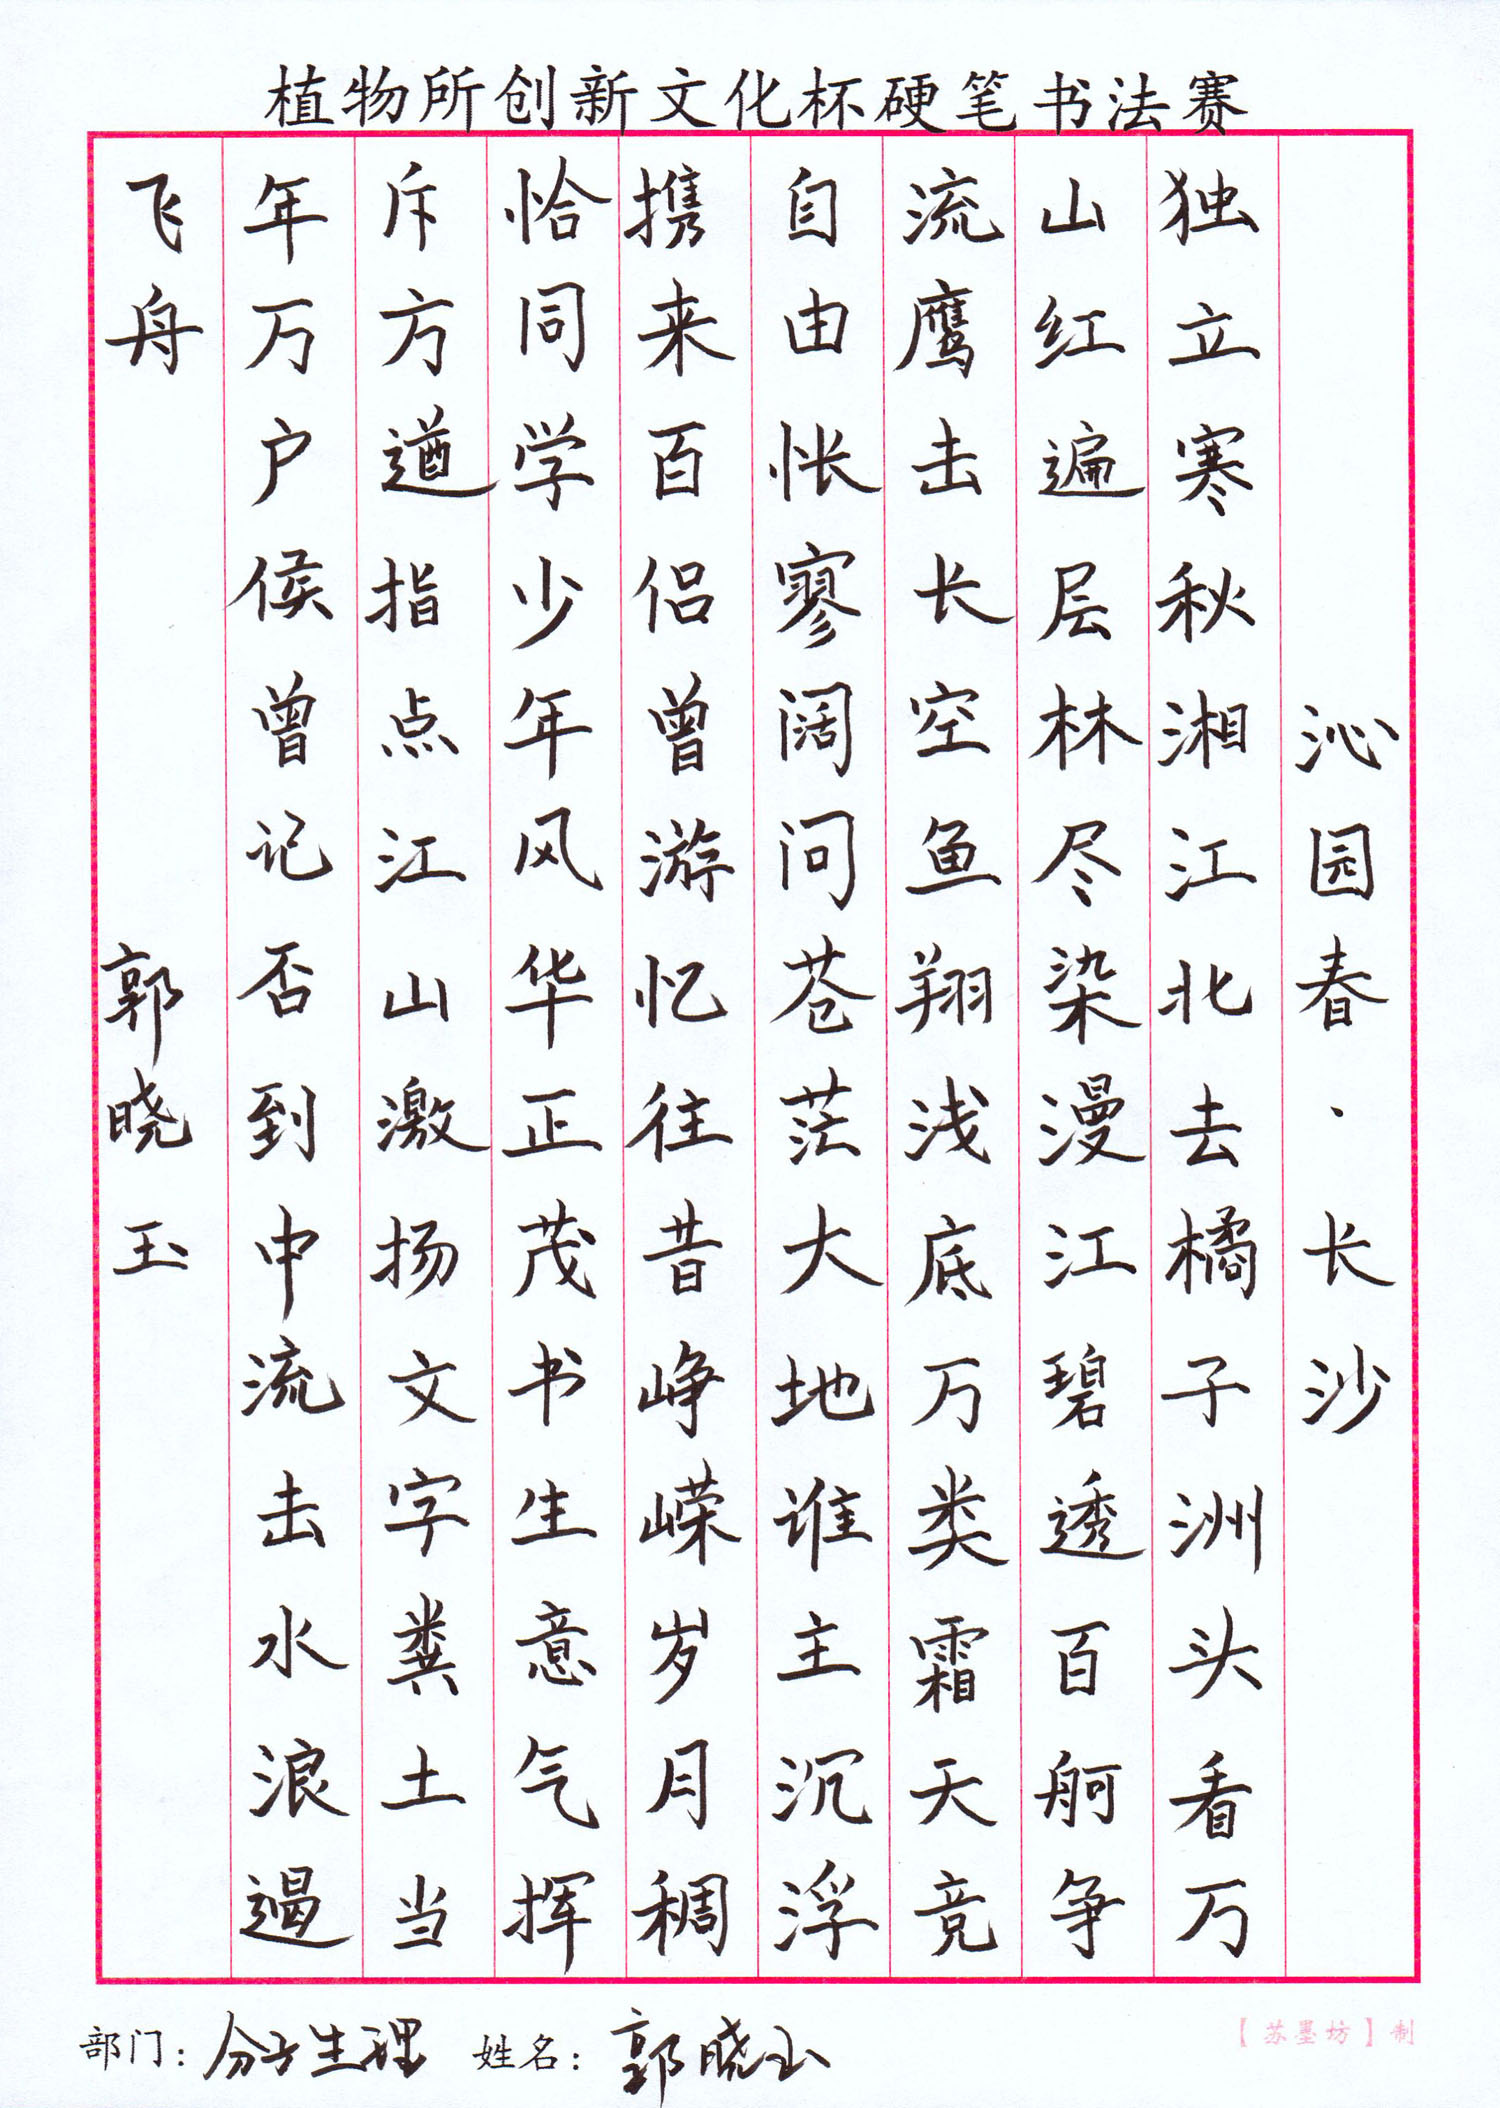 植物所创新文化杯硬笔书法赛
沁园春·长沙
独立寒秋湘江北去橘子洲头看万
山红遍层林尽染漫江碧透百舸争
流鹰击长空鱼翔浅底万类霜天竞
自由怅寥阔问苍茫大地谁主沉浮
携来百侣曾游忆往昔峥嵘岁月稠
恰同学少年风华正茂书生意气挥
斥方遒指点江山激扬文字粪土当
年万户侯曾记否到中流击水浪遏
飞舟 郭晓玉
部门：分子生理 姓名：郭晓玉
【苏墨坊】制